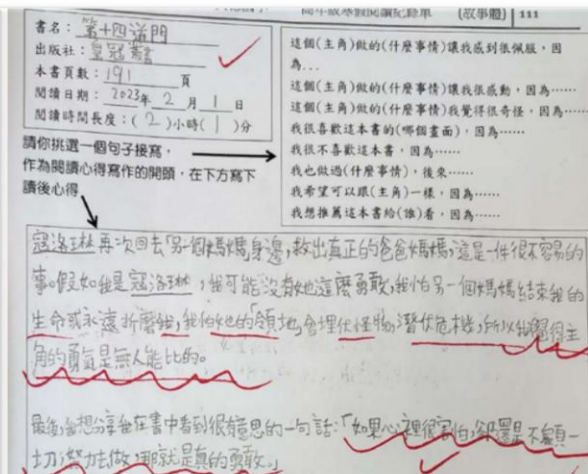 高年級寒假閱讀紀錄單 (故事體) 111
書名：第十四道門
出版社：皇冠叢書
本書頁數：191 頁
閱讀日期：2023年 2 月 1 日
閱讀時間長度：( 2 )小時( 1 )分
請你挑選一個句子接寫，
作為閱讀心得寫作的開頭，在下方寫下
讀後心得
這個(主角)做的(什麼事情)讓我感到很佩服，因
為...
這個(主角)做的(什麼事情)讓我很感動，因為……
這個(主角)做的(什麼事情)我覺得很奇怪，因為……
我很喜歡這本書的(哪個畫面)，因為……
我很不喜歡這本書，因為……
我也做過(什麼事情)，後來……
我希望可以跟(主角)一樣，因為……
我想推薦這本書給(誰)看，因為……
寇洛琳再次回去「另一個媽媽」身邊，救出真正的爸爸媽媽，這是一件很不容易的
事。假如我是寇洛琳，我可能沒有她這麼勇敢，我怕另一個媽媽結束我的
生命或永遠折磨我，我怕她的「領地」會埋伏怪物，潛伏危機，所以我覺得主
角的勇氣是無人能比的。
最後，我想分享我在書中看到很有意思的一句話：「如果心裡很害怕，卻還是不顧一
切，努力去做，那就是真的勇敢。」